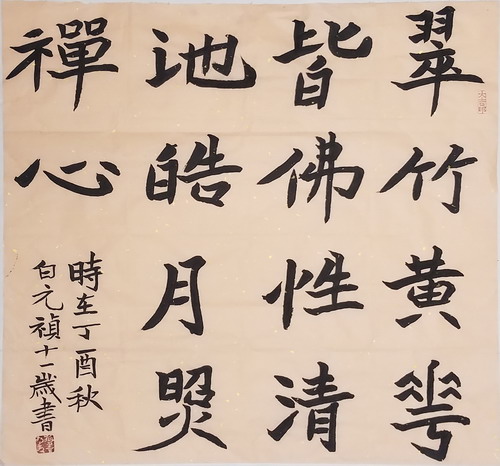 翠竹黄花
皆佛性清
池皓月照
禪心
時在丁酉秋
白元禎十一歲書